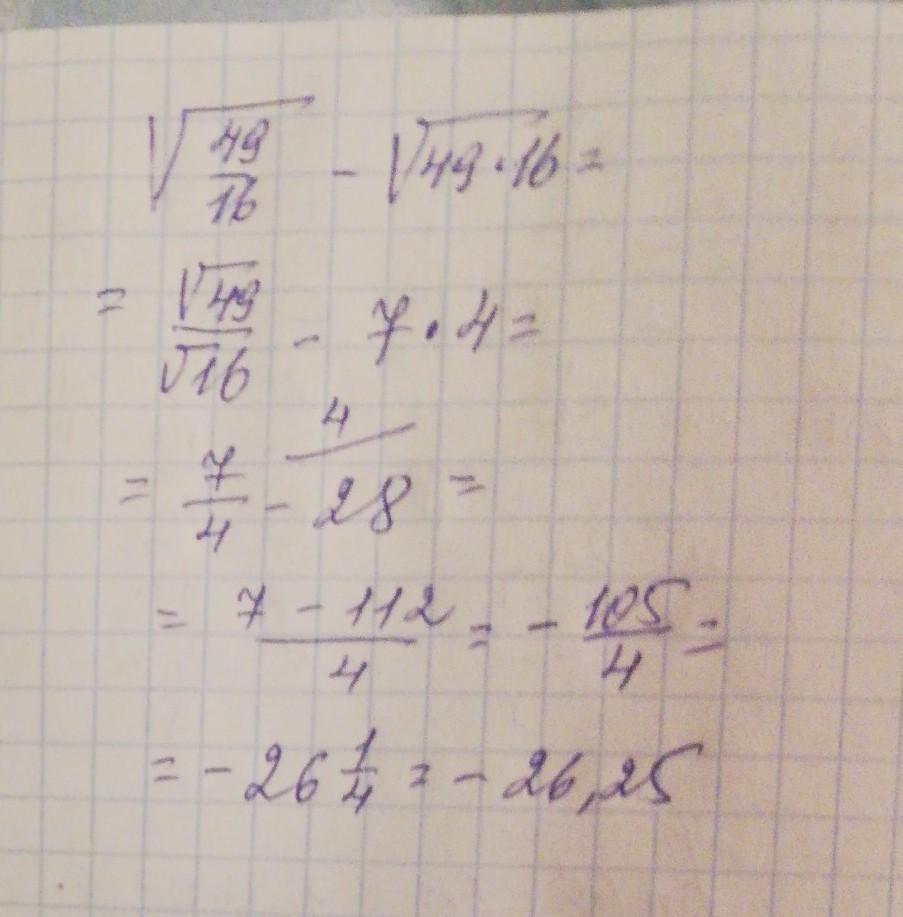 √(49/16) - √(49·16) =
= √49/√16 - 7·4 =
4
= 7/4 - 28 =
= (7 - 112)/4 = - 105/4 =
= - 26 1/4 = - 26,25